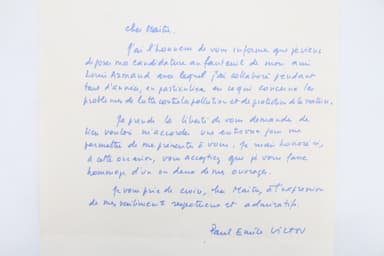 cher Maître,
J'ai l'honneur de vous informer que je viens
déposer ma candidature au fauteuil de mon ami
Louis Armand avec lequel j'ai collaboré pendant
tant d'années, en particulier en ce qui concerne les
problèmes de lutte contre la pollution et de protection de la nature.
Je prends la liberté de vous demander de
bien vouloir m'accorder une entrevue pour me
permettre de me présenter à vous. Je serais honoré si,
à cette occasion, vous acceptiez que je vous fasse
hommage d'un ou deux de mes ouvrages.
Je vous prie de croire, cher Maître, à l'expression
de mes sentiments respectueux et admiratifs.
Paul Emile Victor